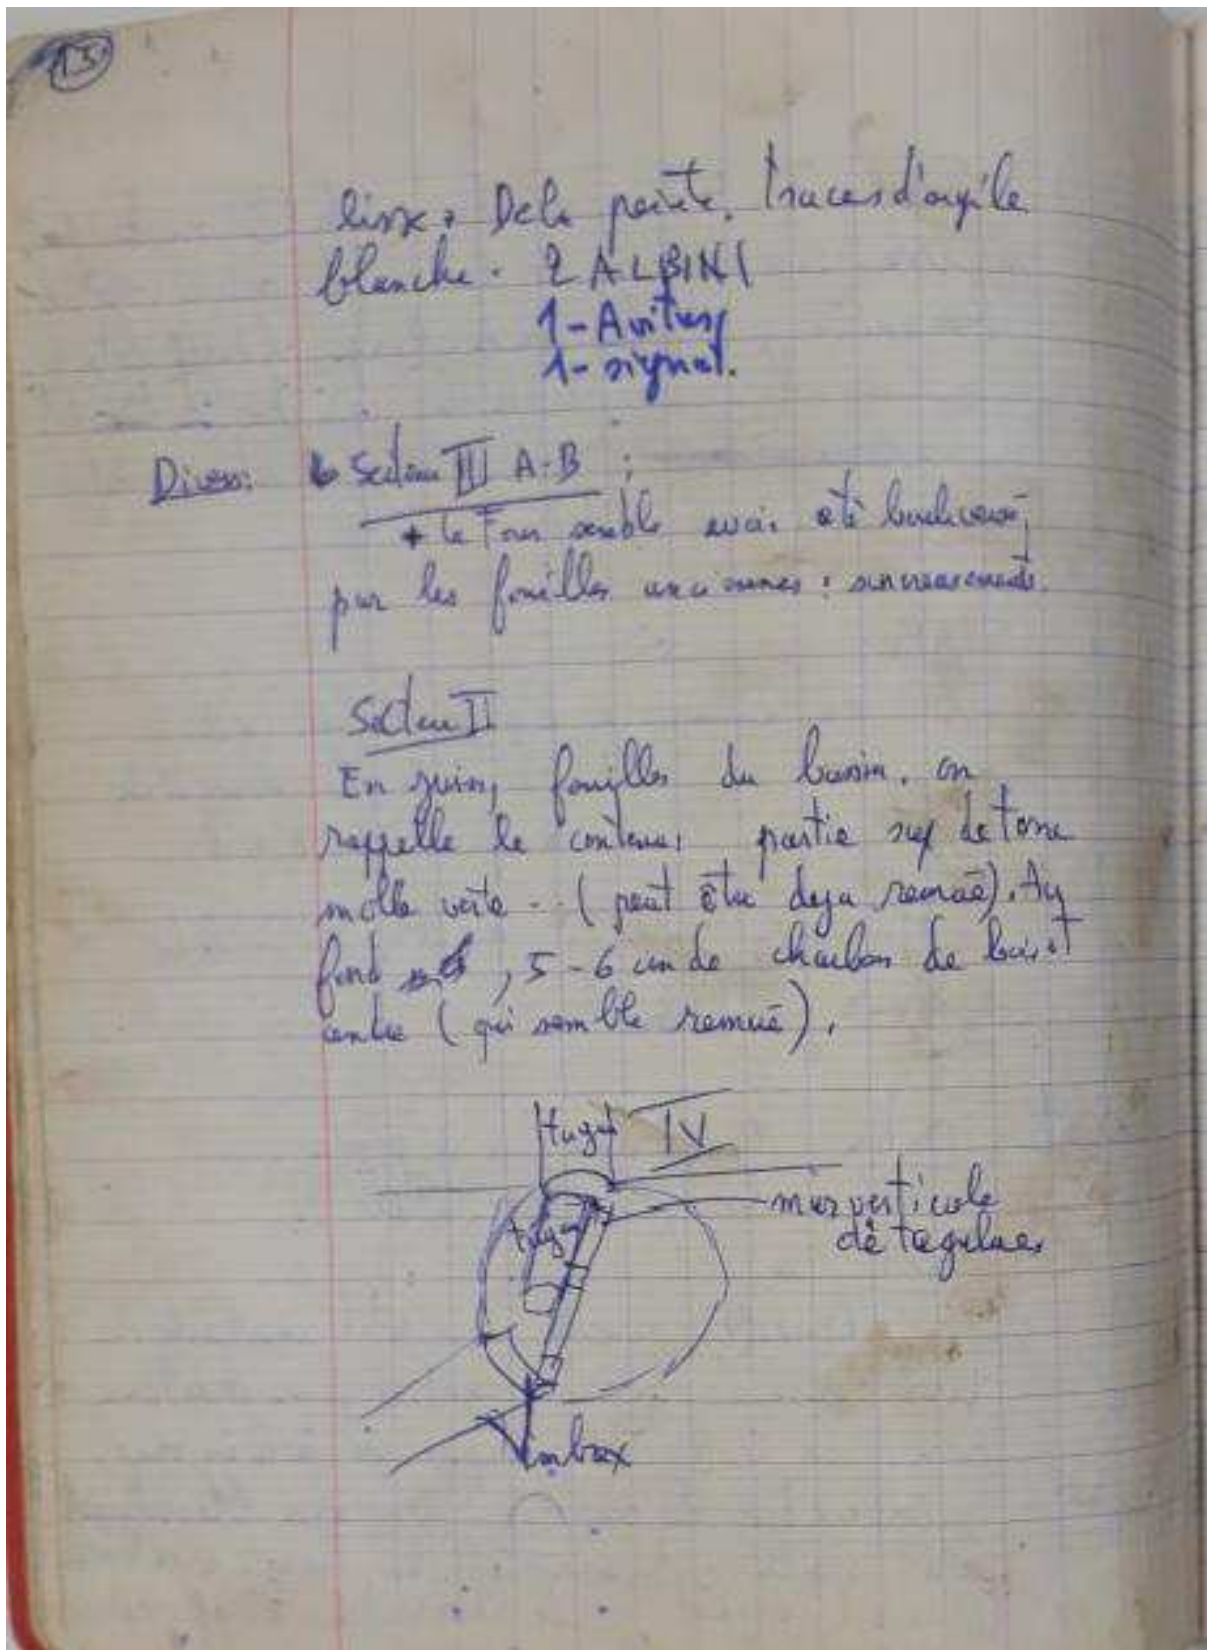 13
lisse. De la pointe. Traces d'argile
blanche. 2 ALBINI
1- Avitus
1- signal.
Divers: Section III A-B :
+ le Four semble avoir été bouleversé,
par les fouilles anciennes :
Secteur II
En juin, fouilles du bassin. on
rappelle le contenu: partie sup de terre
molle verte - (peut être deja remué). Au
fond , 5-6 cm de charbon de bois et
cendre (qui semble remué).
IV
mur verticale
de tegulae
imbrex